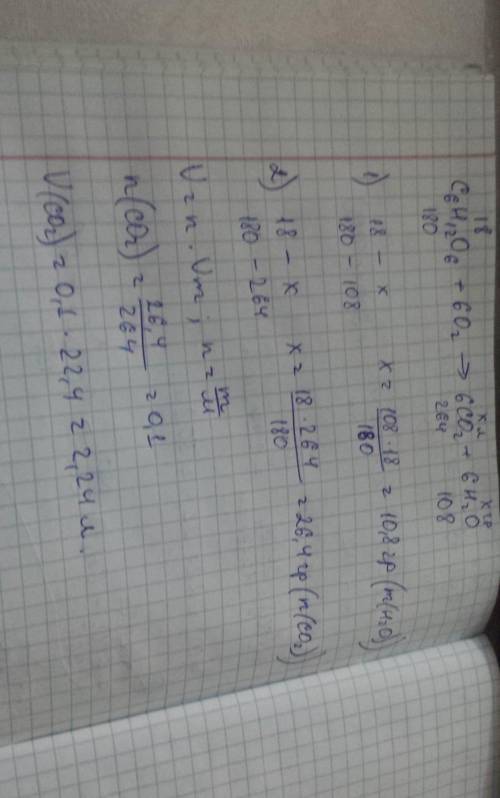 18 x л x гр
C₆H₁₂O₆ + 6O₂ → 6CO₂ + 6H₂O
180 264 108
1) 18 – x x = 108·18/180 = 10,8 гр (m(H₂O))
180 – 108
2) 18 – x x = 18·264/180 = 26,4 гр (m(CO₂))
180 – 264
V = n · Vm ; n = m/M
n(CO₂) = 26,4/264 = 0,1
V(CO₂) = 0,1 · 22,4 = 2,24 л.